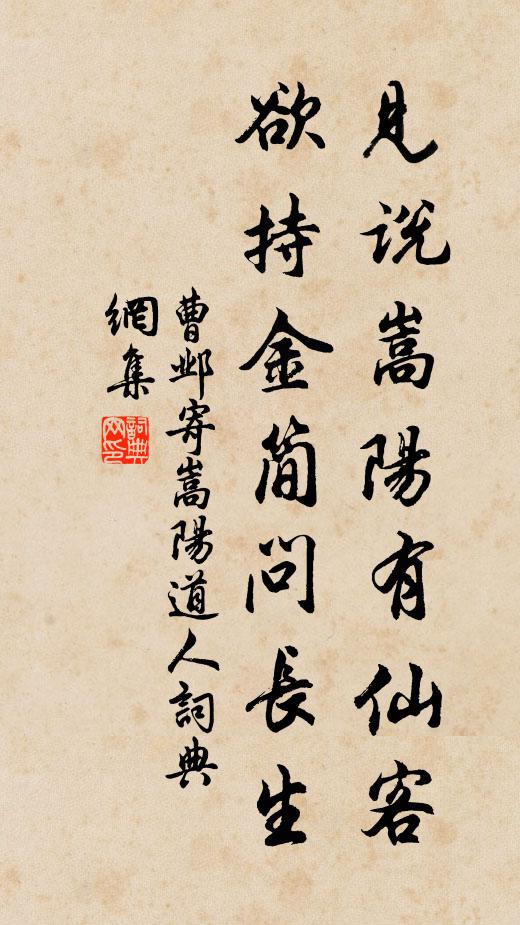 見説嵩陽有仙客
欲持金簡問長生
曹邺寄嵩陽道人詞典
網集
詞典网印